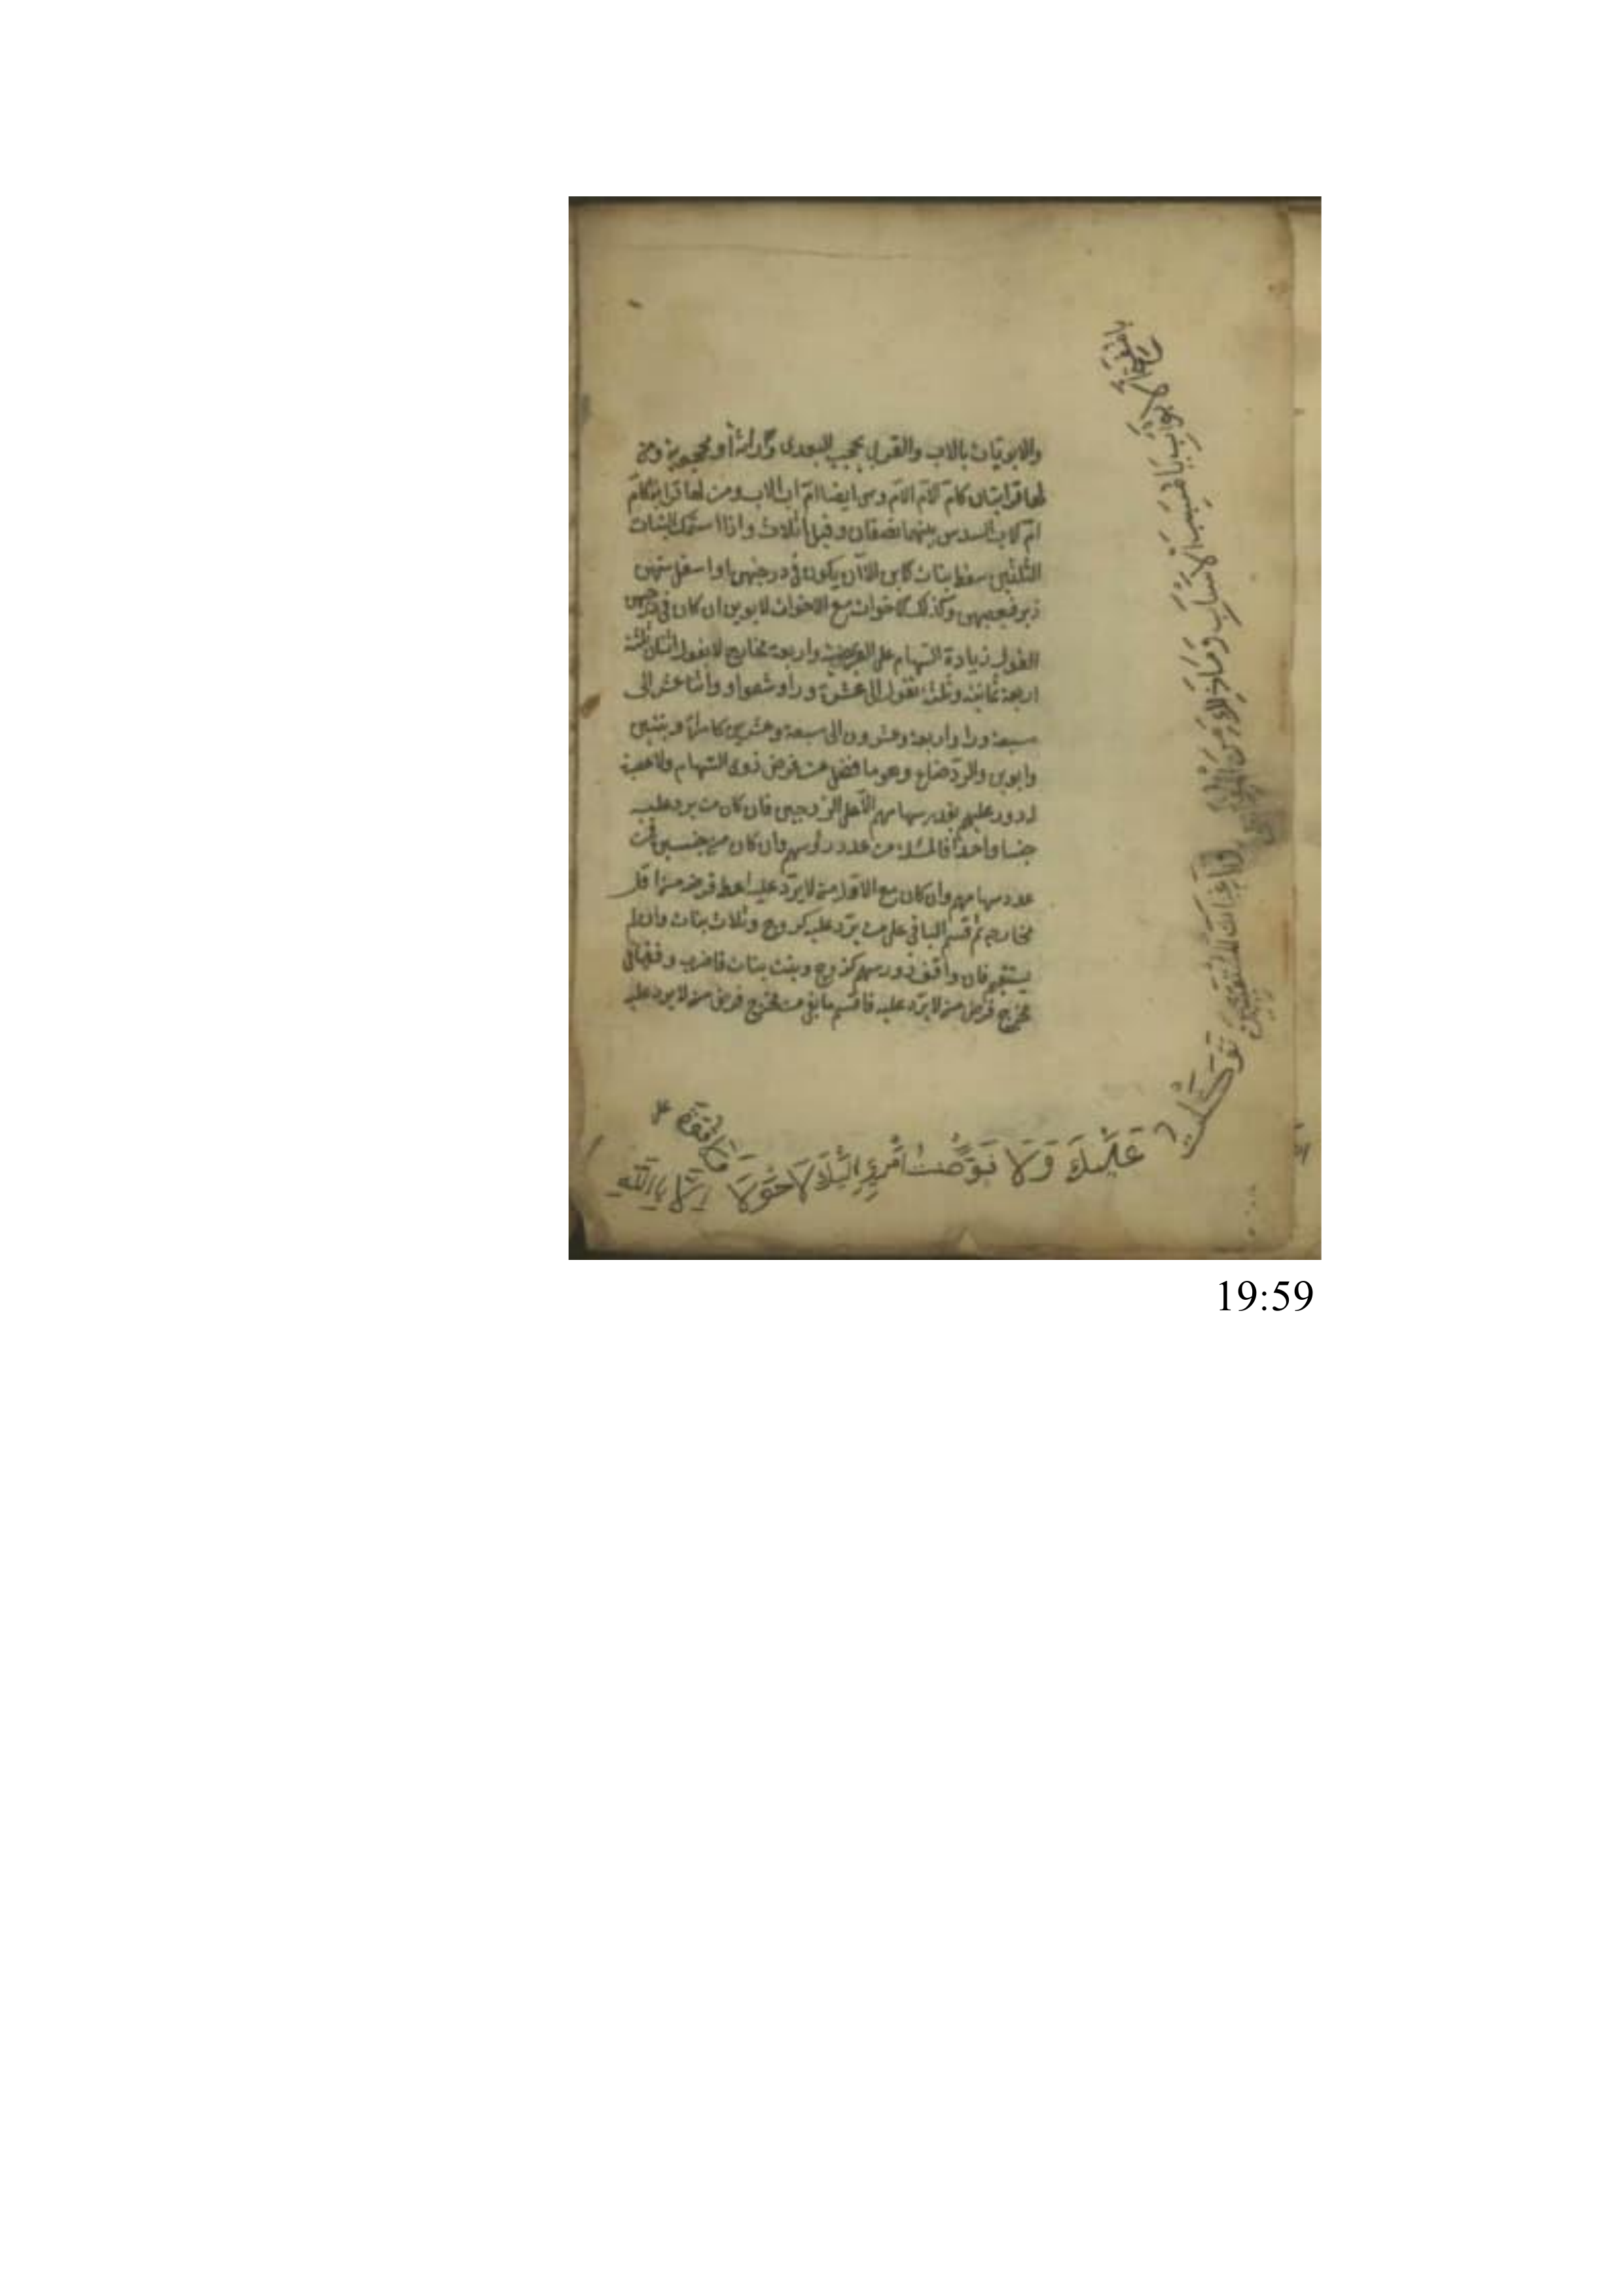 والابويات بالاب والقربى تحجب البعدى وارثة أو محجوبة ومن
لها قرابتان كام الام الام وهى ايضا ام اب الاب ومن لها قرابة كام
ام الاب السدس بينهما نصفان وقيل اثلاث واذا استكمل البنات
الثلثين سقط بنات الابن الا ان يكون فى درجتهن او اسفل منهن
ذكر فيعصبهن وكذلك الاخوات مع الاخوات لابوين ان كان فى درجتهن
العول زيادة السهام على الفريضة واربعة مخارج لا يعول اثنان ثلثة
اربعة ثمانية وثلثة تعول الى عشرة وترا وشفعا واثنا عشر الى
سبعة وترا واربعة وعشرون الى سبعة وعشرين كامرأة وبنتين
وابوين والرد وهو ما فضل عن فرض ذوى السهام ولا عصبة
ردوه عليهم بقدر سهامهم الا على الزوجين فان كان من يرد عليه
جنسا واحدا فالمسئلة من عدد رؤسهم وان كان من جنسين فمن
عدد سهامهم وان كان مع الاول من لا يرد عليه اعط فرضه من اقل
مخارجه ثم قسم الباقى على من يرد عليه كزوج وثلاث بنات وان لم
يستقم فان وافق رؤسهم كزوج وست بنات فاضرب وفقها فى
مخرج فرض من لا يرد عليه فاقسم ما بقى من مخرج فرض من لا يرد عليه
الابواب يا مسبب الاسباب
غياث المستغيثين توكلت
عليك امرى اليك لا حول ولا قوة
الا بالله
19:59